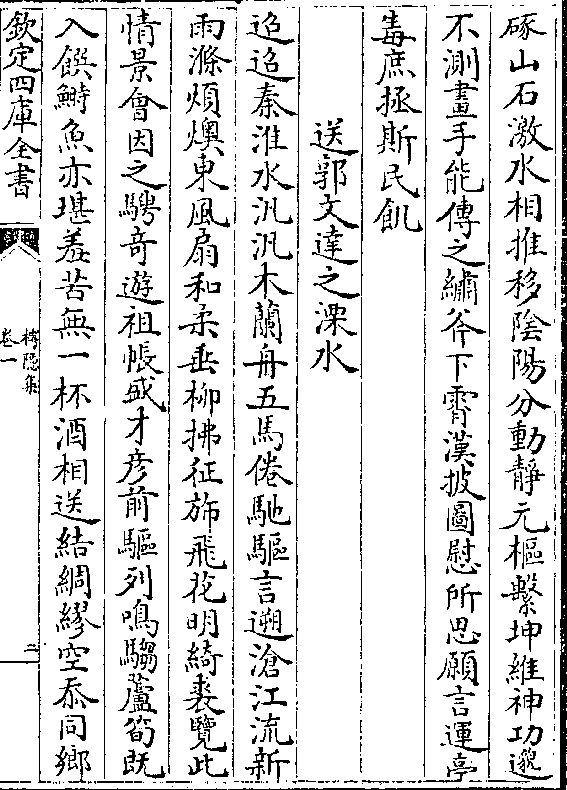 碌山石激水相推移陰陽分動靜元樞繫坤維神功邈
不測畫手能傳之繡斧下霄漢披圖慰所思願言運亭
毒庶拯斯民飢
送郭文達之溧水
迢迢秦淮水汎汎木蘭舟五馬倦馳驅言遡滄江流新
雨滌煩燠東風扇和柔垂柳拂征斾飛花明綺裘覽此
情景會因之騁竒遊祖帳盛才彦前驅列鳴騶蘆筍既
入饌鰣魚亦堪羞苦無一杯酒相送結綢繆空忝同鄉
欽定四庫全書
樗隠集
卷一
二